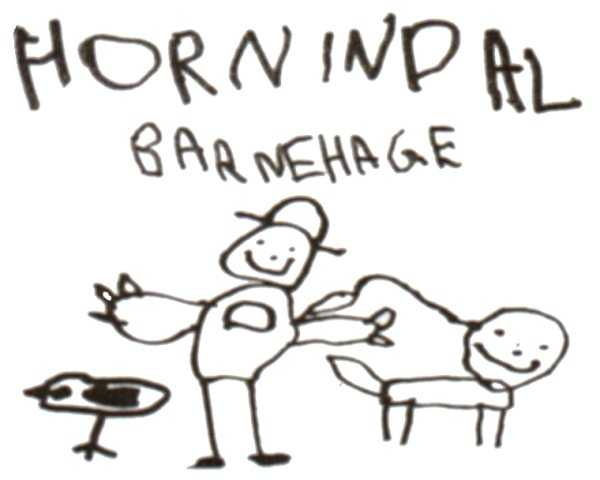 HORNINDAL
BARNEHAGE